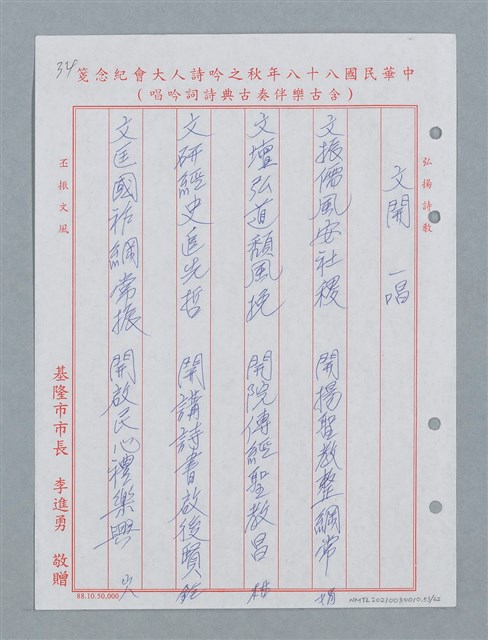 34
中華民國八十八年秋之吟詩人大會紀念箋
（含古樂伴奏古典詩詞吟唱）
弘揚詩教
文開 一唱
文振儒風安社稷 開揚聖教整綱常 娟
文壇弘道頹風挽 開院傳經聖教昌
文研經史追先哲 開講詩書啟後賢
文匡國祚綱常振 開啟民心禮樂興
丕振文風
基隆市市長 李進勇 敬贈
88.10.50,000